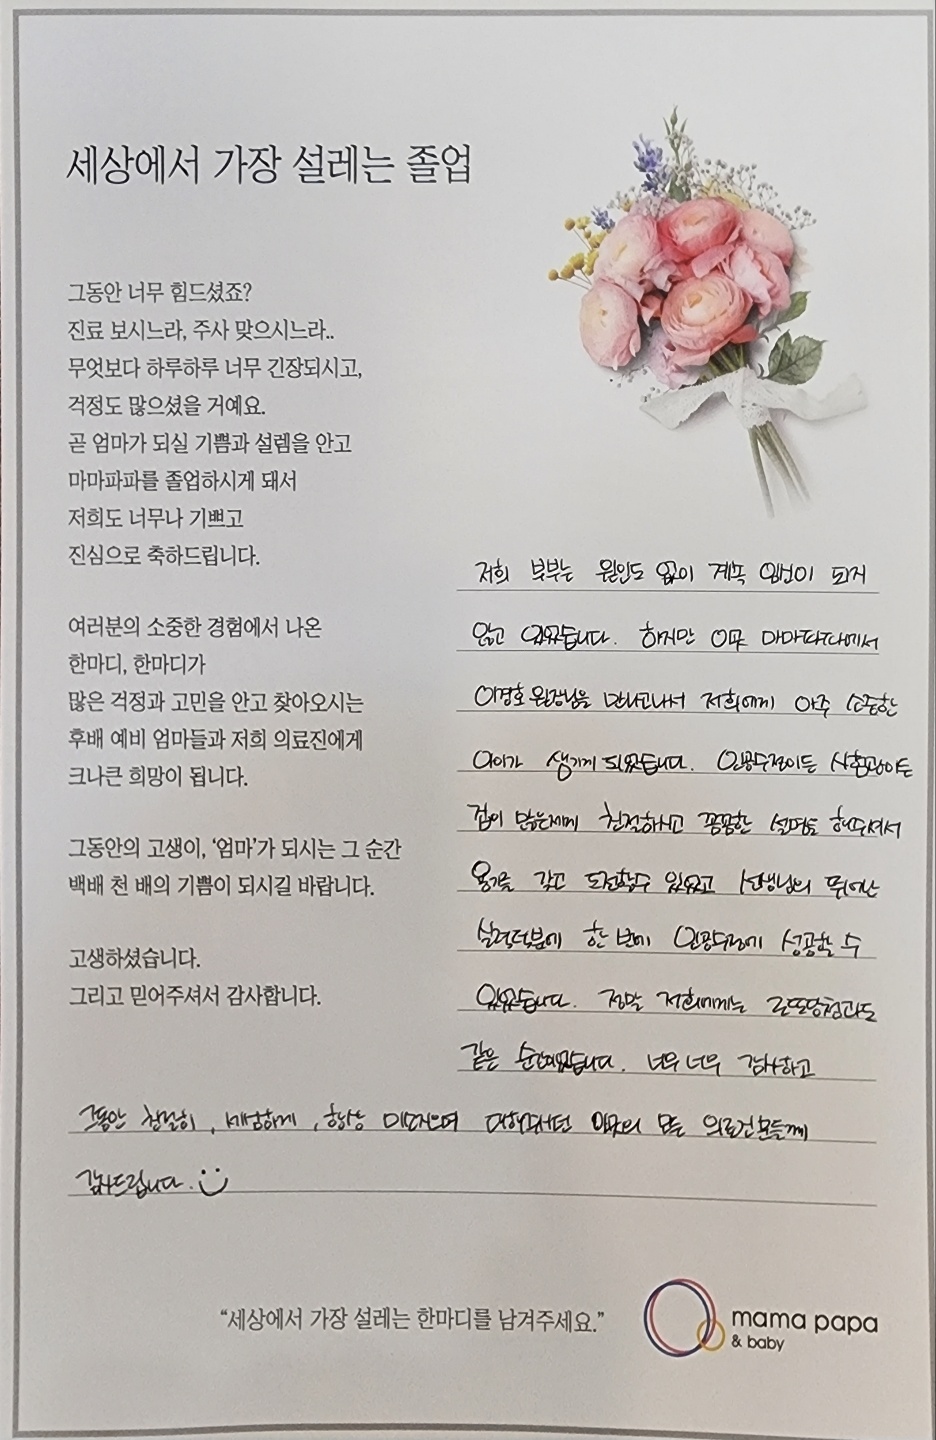 세상에서 가장 설레는 졸업
그동안 너무 힘드셨죠?
진료 보시느라, 주사 맞으시느라..
무엇보다 하루하루 너무 긴장되시고,
걱정도 많으셨을 거예요.
곧 엄마가 되실 기쁨과 설렘을 안고
마마파파를 졸업하시게 돼서
저희도 너무나 기쁘고
진심으로 축하드립니다.
여러분의 소중한 경험에서 나온
한마디, 한마디가
많은 걱정과 고민을 안고 찾아오시는
후배 예비 엄마들과 저희 의료진에게
크나큰 희망이 됩니다.
그동안의 고생이, '엄마'가 되시는 그 순간
백배 천 배의 기쁨이 되시길 바랍니다.
고생하셨습니다.
그리고 믿어주셔서 감사합니다.
저희 부부는 원인도 없이 계속 임신이 되지
않고 있었습니다. 하지만 이곳 마마파파에서
이경호 원장님을 만나고나서 저희에게 아주 소중한
아이가 생기게 되었습니다. 인공수정이든 시험관이든
겁이 많은저에게 친절하시고 꼼꼼한 설명도 해주셔서
용기를 갖고 도전할수 있었고 선생님의 뛰어난
실력덕분에 한 번에 인공수정에 성공할 수
있었습니다. 정말 저희에게는 로또당첨과도
같은 순간이었습니다. 너무 너무 감사하고
그동안 친절히, 세심하게, 항상 미소지으며 대해주셔던 이곳의 모든 의료진분들께
감사드립니다. :)
"세상에서 가장 설레는 한마디를 남겨주세요."
mama papa
& baby